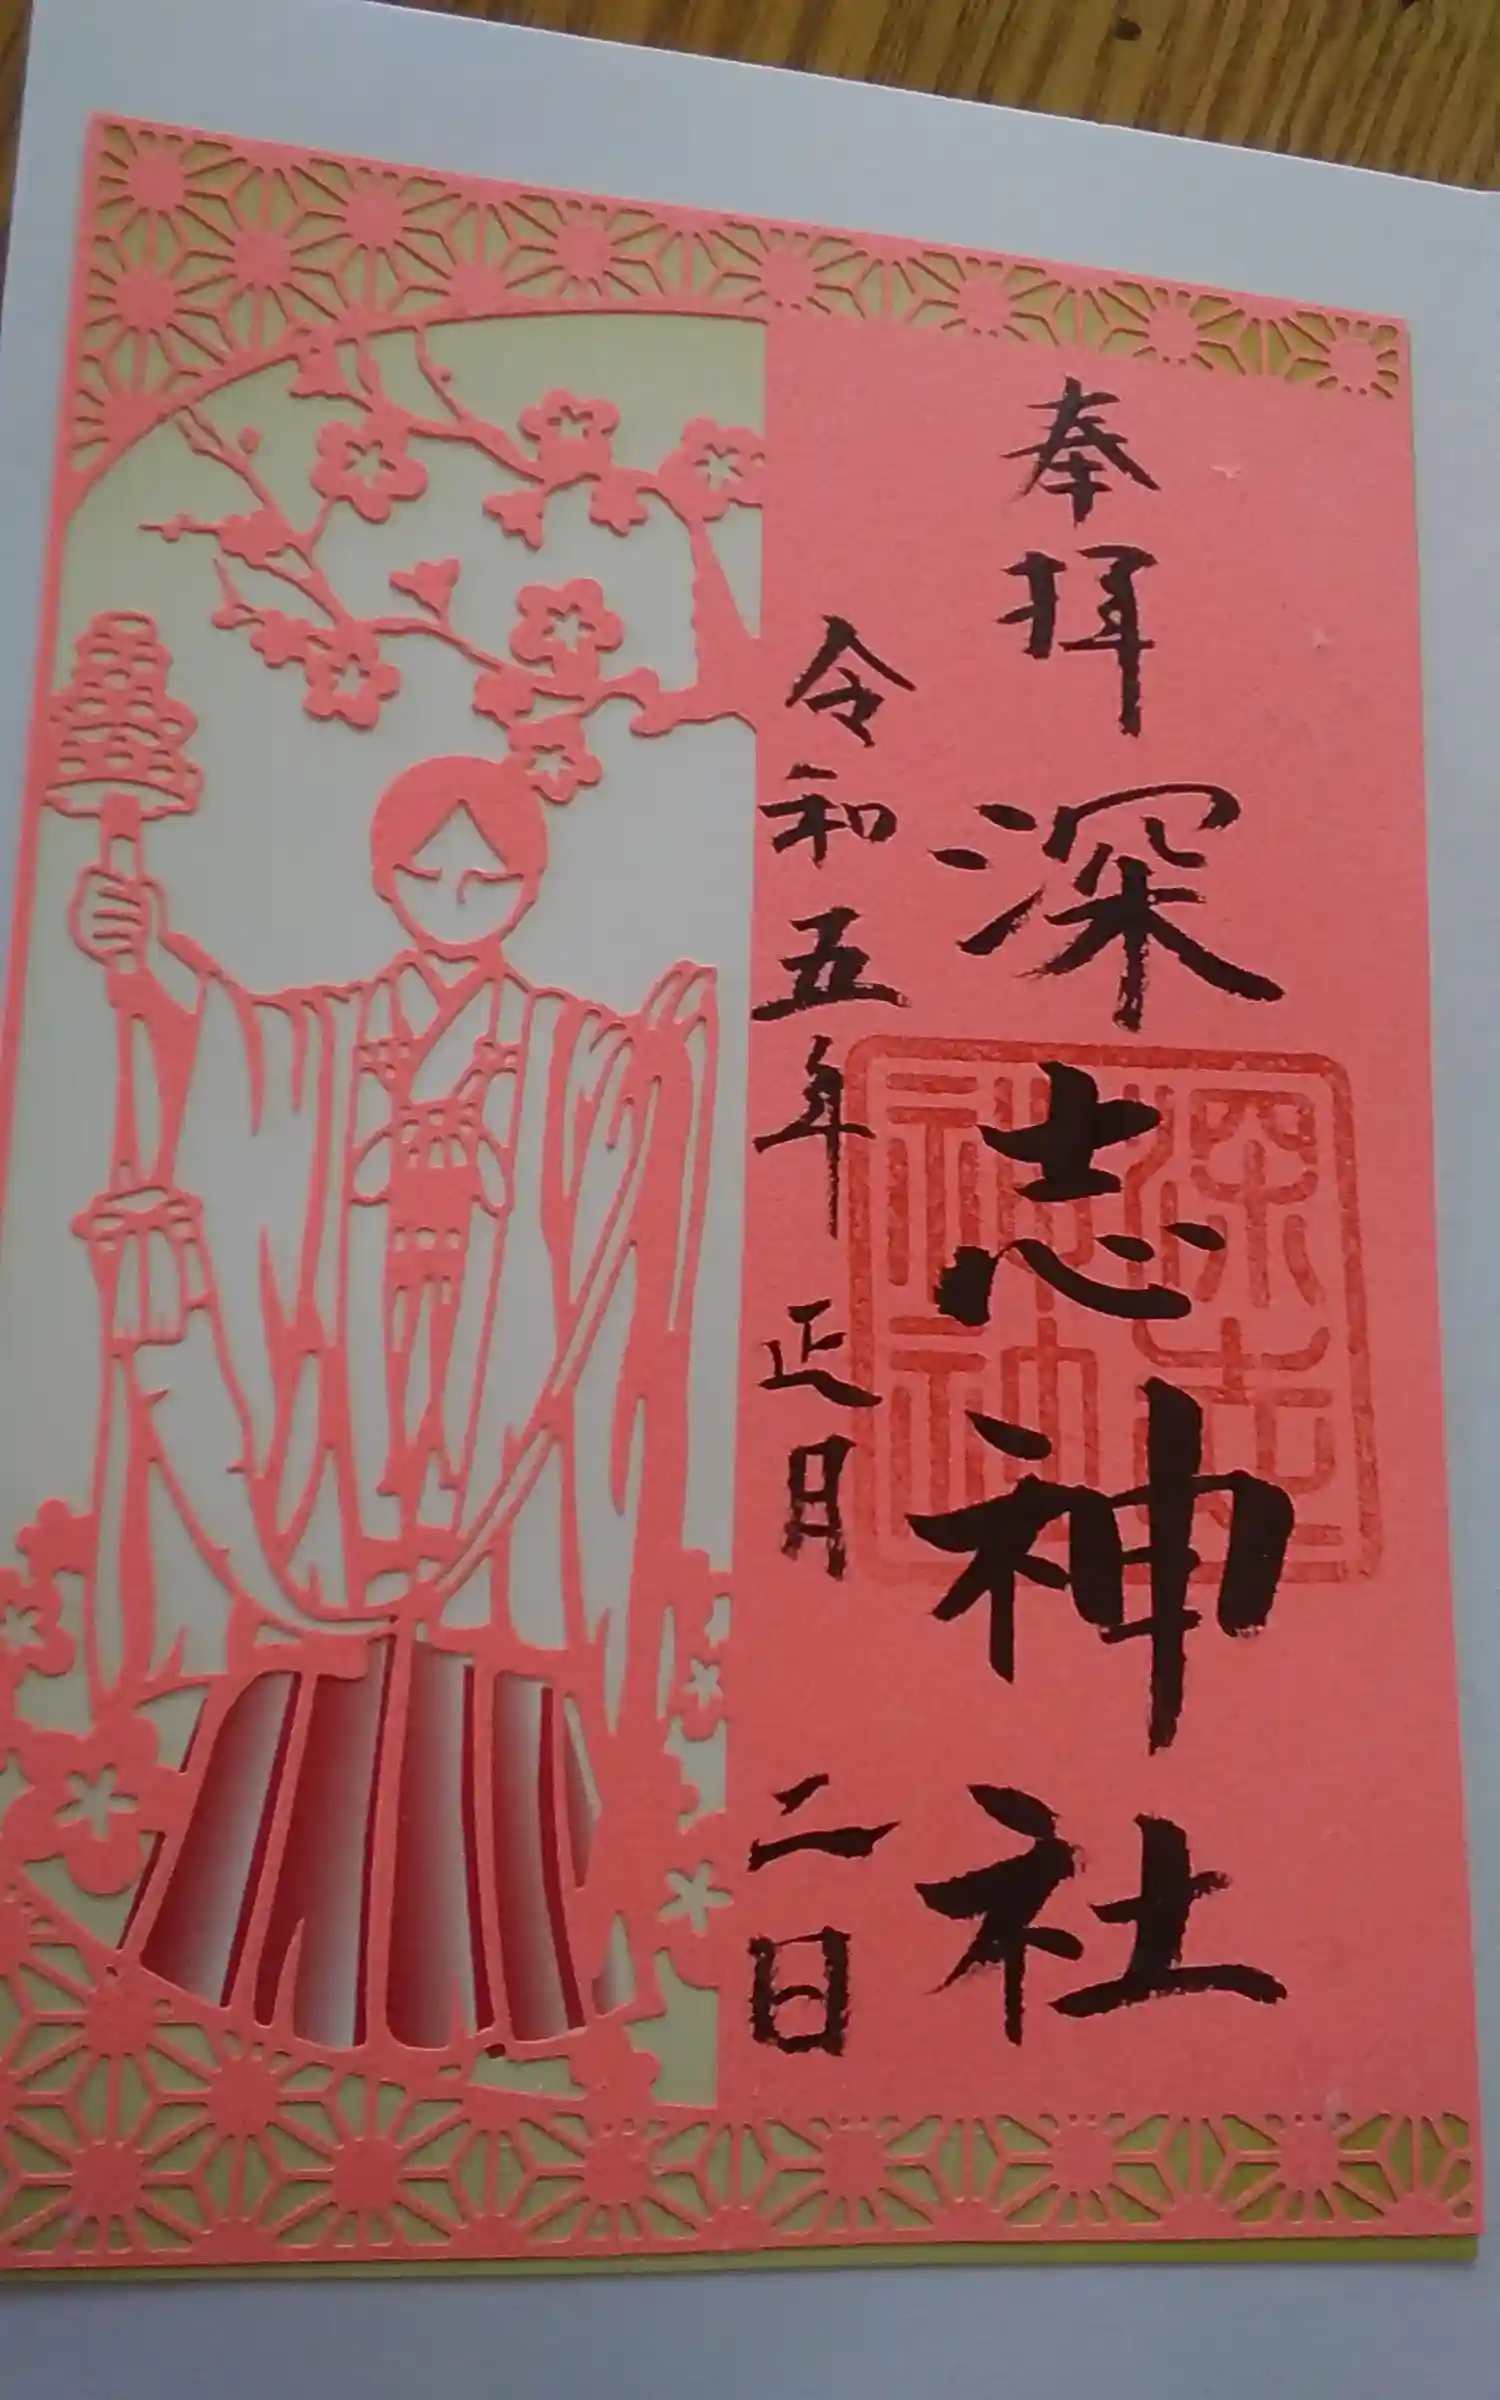 奉拝
深志神社
深志神社
令和五年正月二日